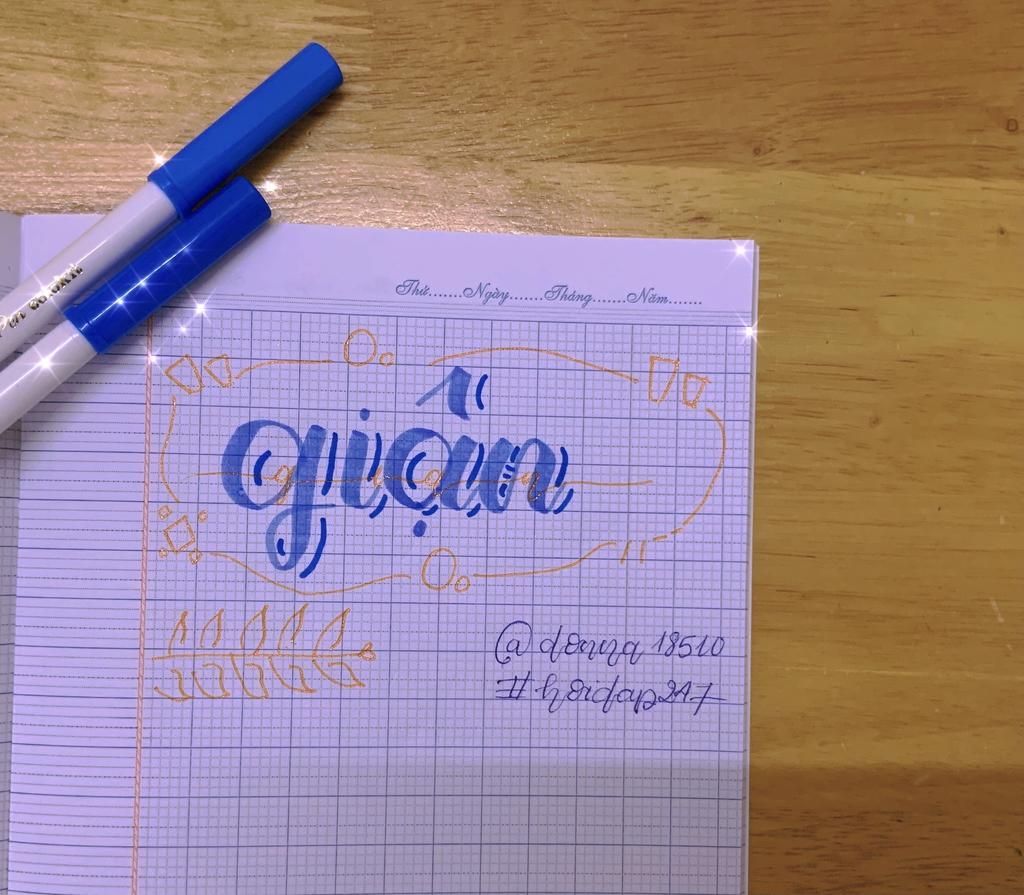 Thứ.......Ngày.......Tháng.......Năm.......
giận
@donna18510
#hoidap247